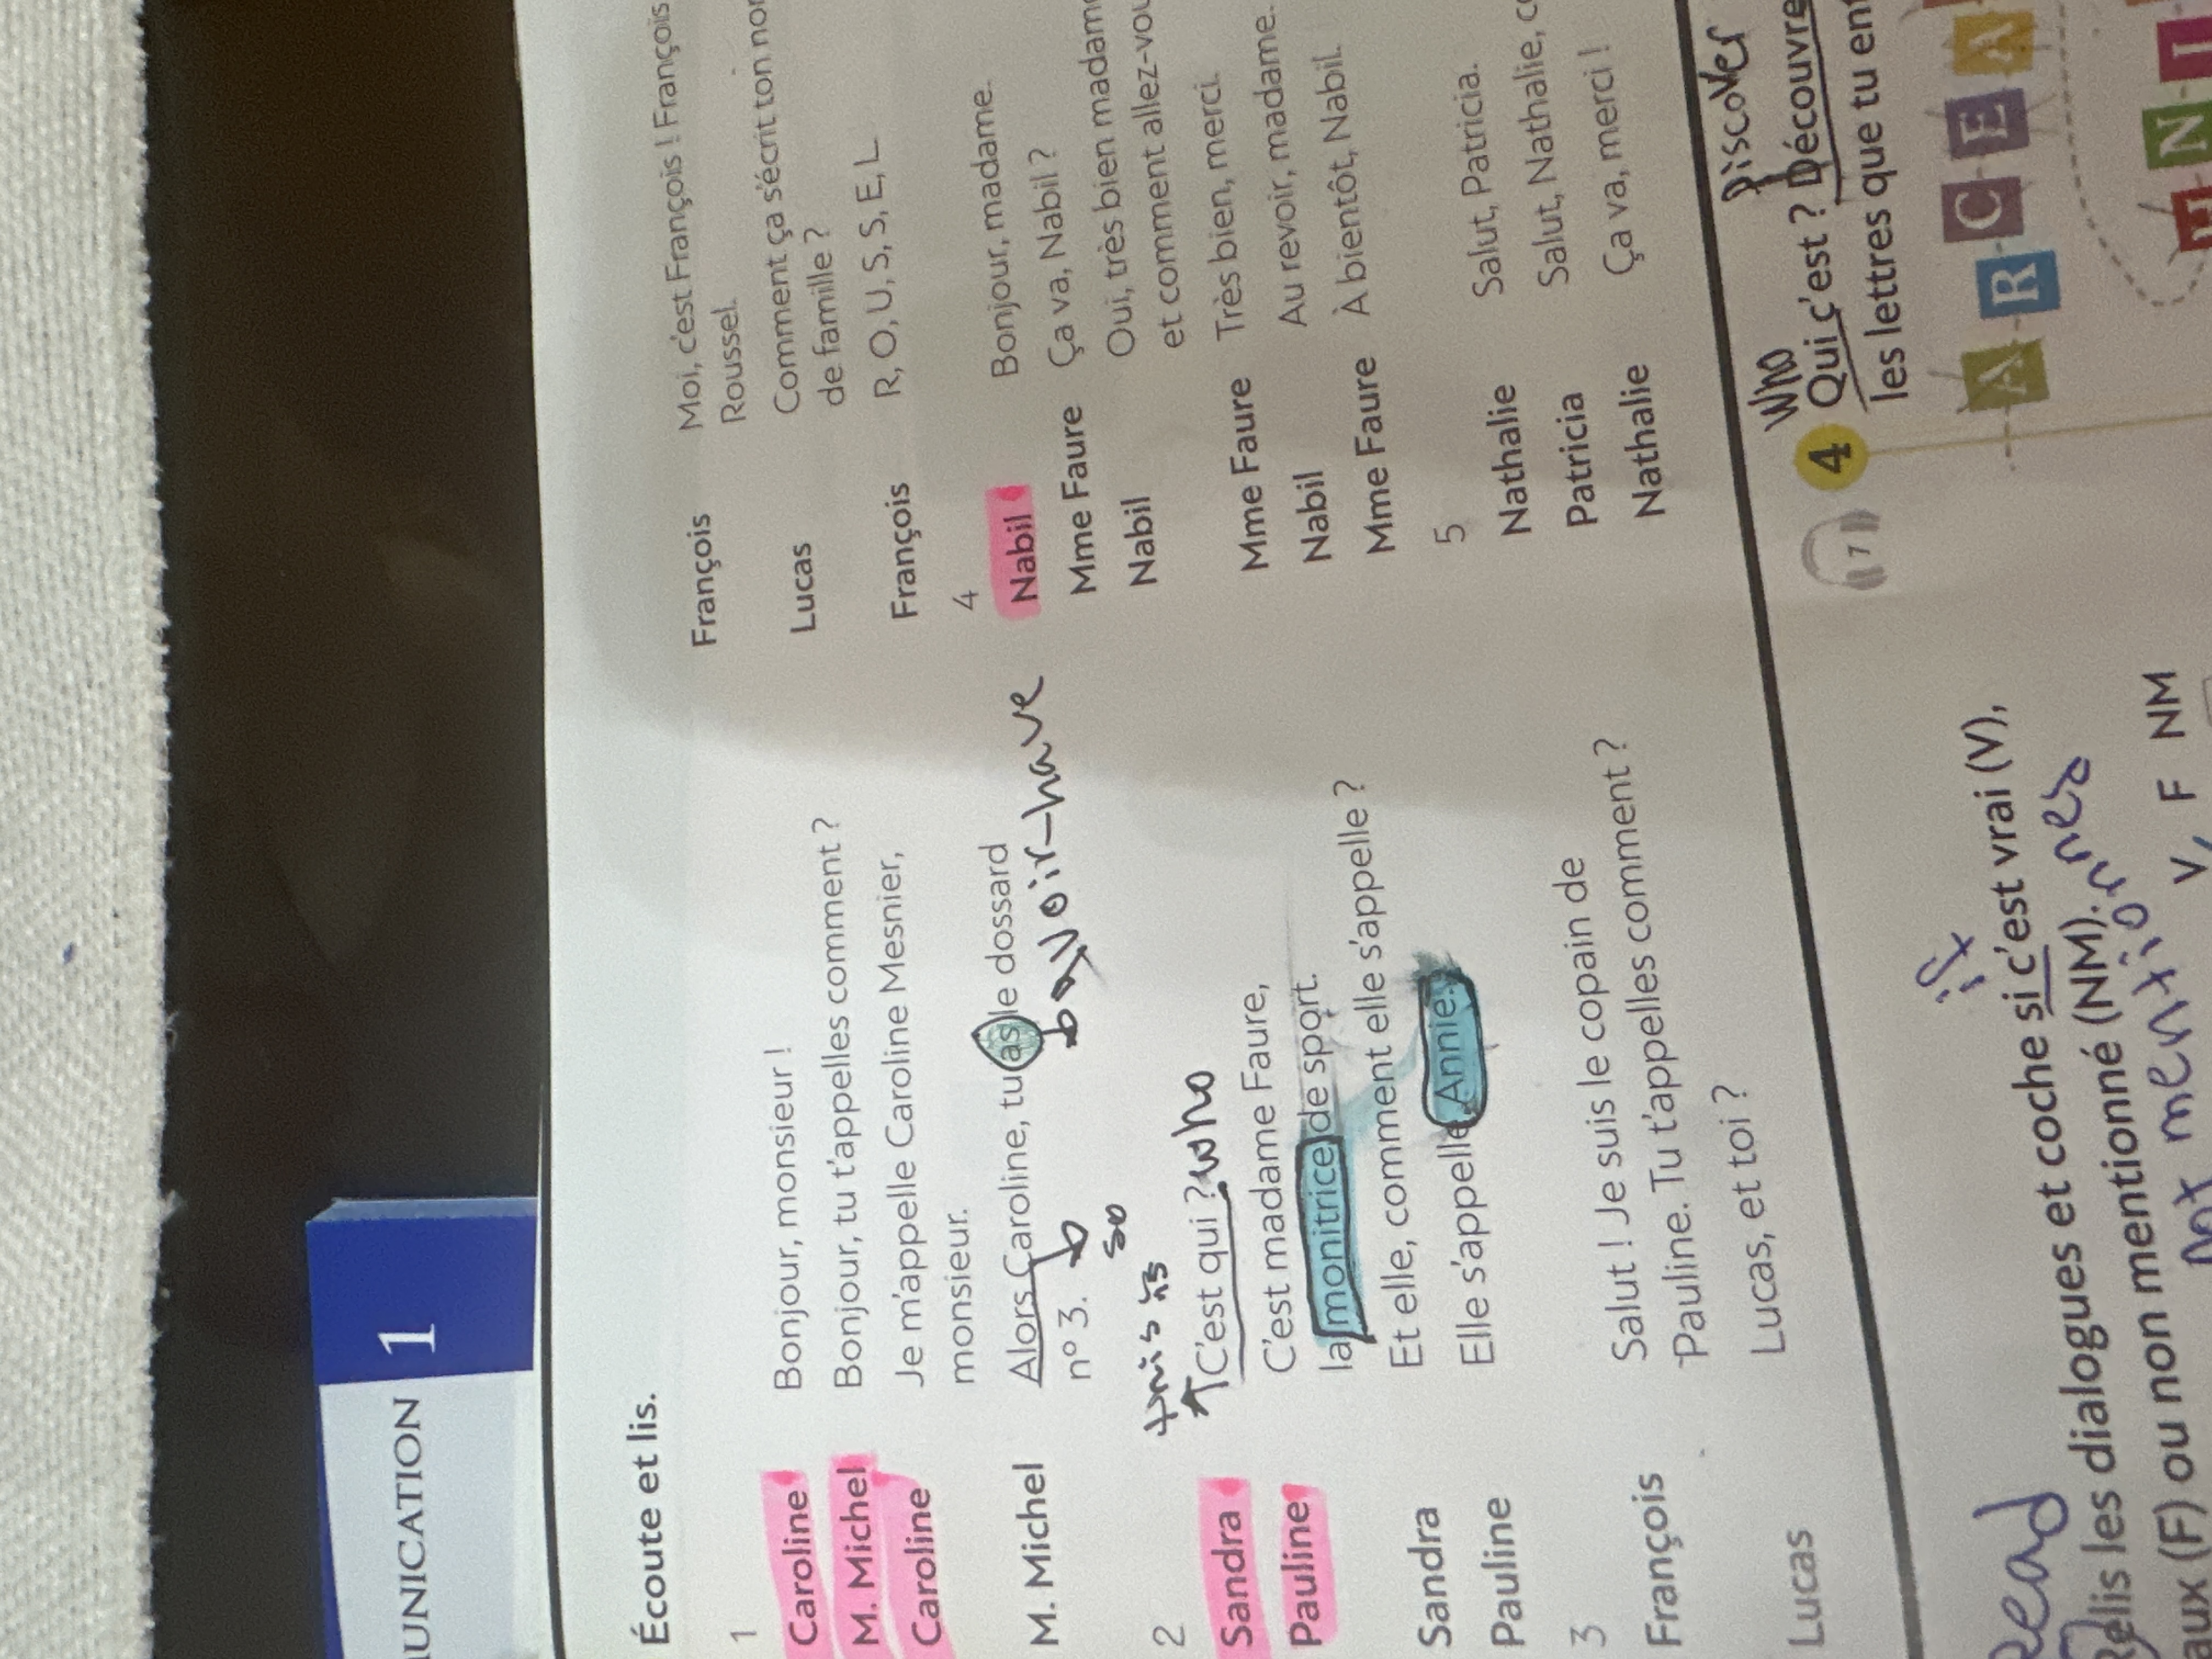 1
Écoute et lis.
1
Caroline Bonjour, monsieur !
M. Michel Bonjour, tu t'appelles comment ?
Caroline Je m'appelle Caroline Mesnier,
monsieur.
M. Michel Alors Caroline, tu as le dossard
n° 3.
avoir-have
so
this is
2
Sandra C'est qui ? who
Pauline C'est madame Faure,
la monitrice de sport.
Sandra Et elle, comment elle s'appelle ?
Pauline Elle s'appelle Annie.
3
François Salut ! Je suis le copain de
Pauline. Tu t'appelles comment ?
Lucas Lucas, et toi ?
François Moi, c'est François ! François
Roussel.
Lucas Comment ça s'écrit ton
de famille ?
François R, O, U, S, S, E, L
4
Nabil Bonjour, madame.
Mme Faure Ça va, Nabil ?
Nabil Oui, très bien
et comment
Mme Faure Très bien, merci.
Nabil Au revoir, madame.
Mme Faure À bientôt, Nabil.
5
Nathalie Salut, Patricia.
Patricia Salut, Nathalie,
Nathalie Ça va, merci !
Read
if
les dialogues et coche si c'est vrai (V),
(F) ou non mentionné (NM).
not mentionned
V F NM
Who Discover
7 4 Qui c'est ?
les lettres que tu
A R C E A
N